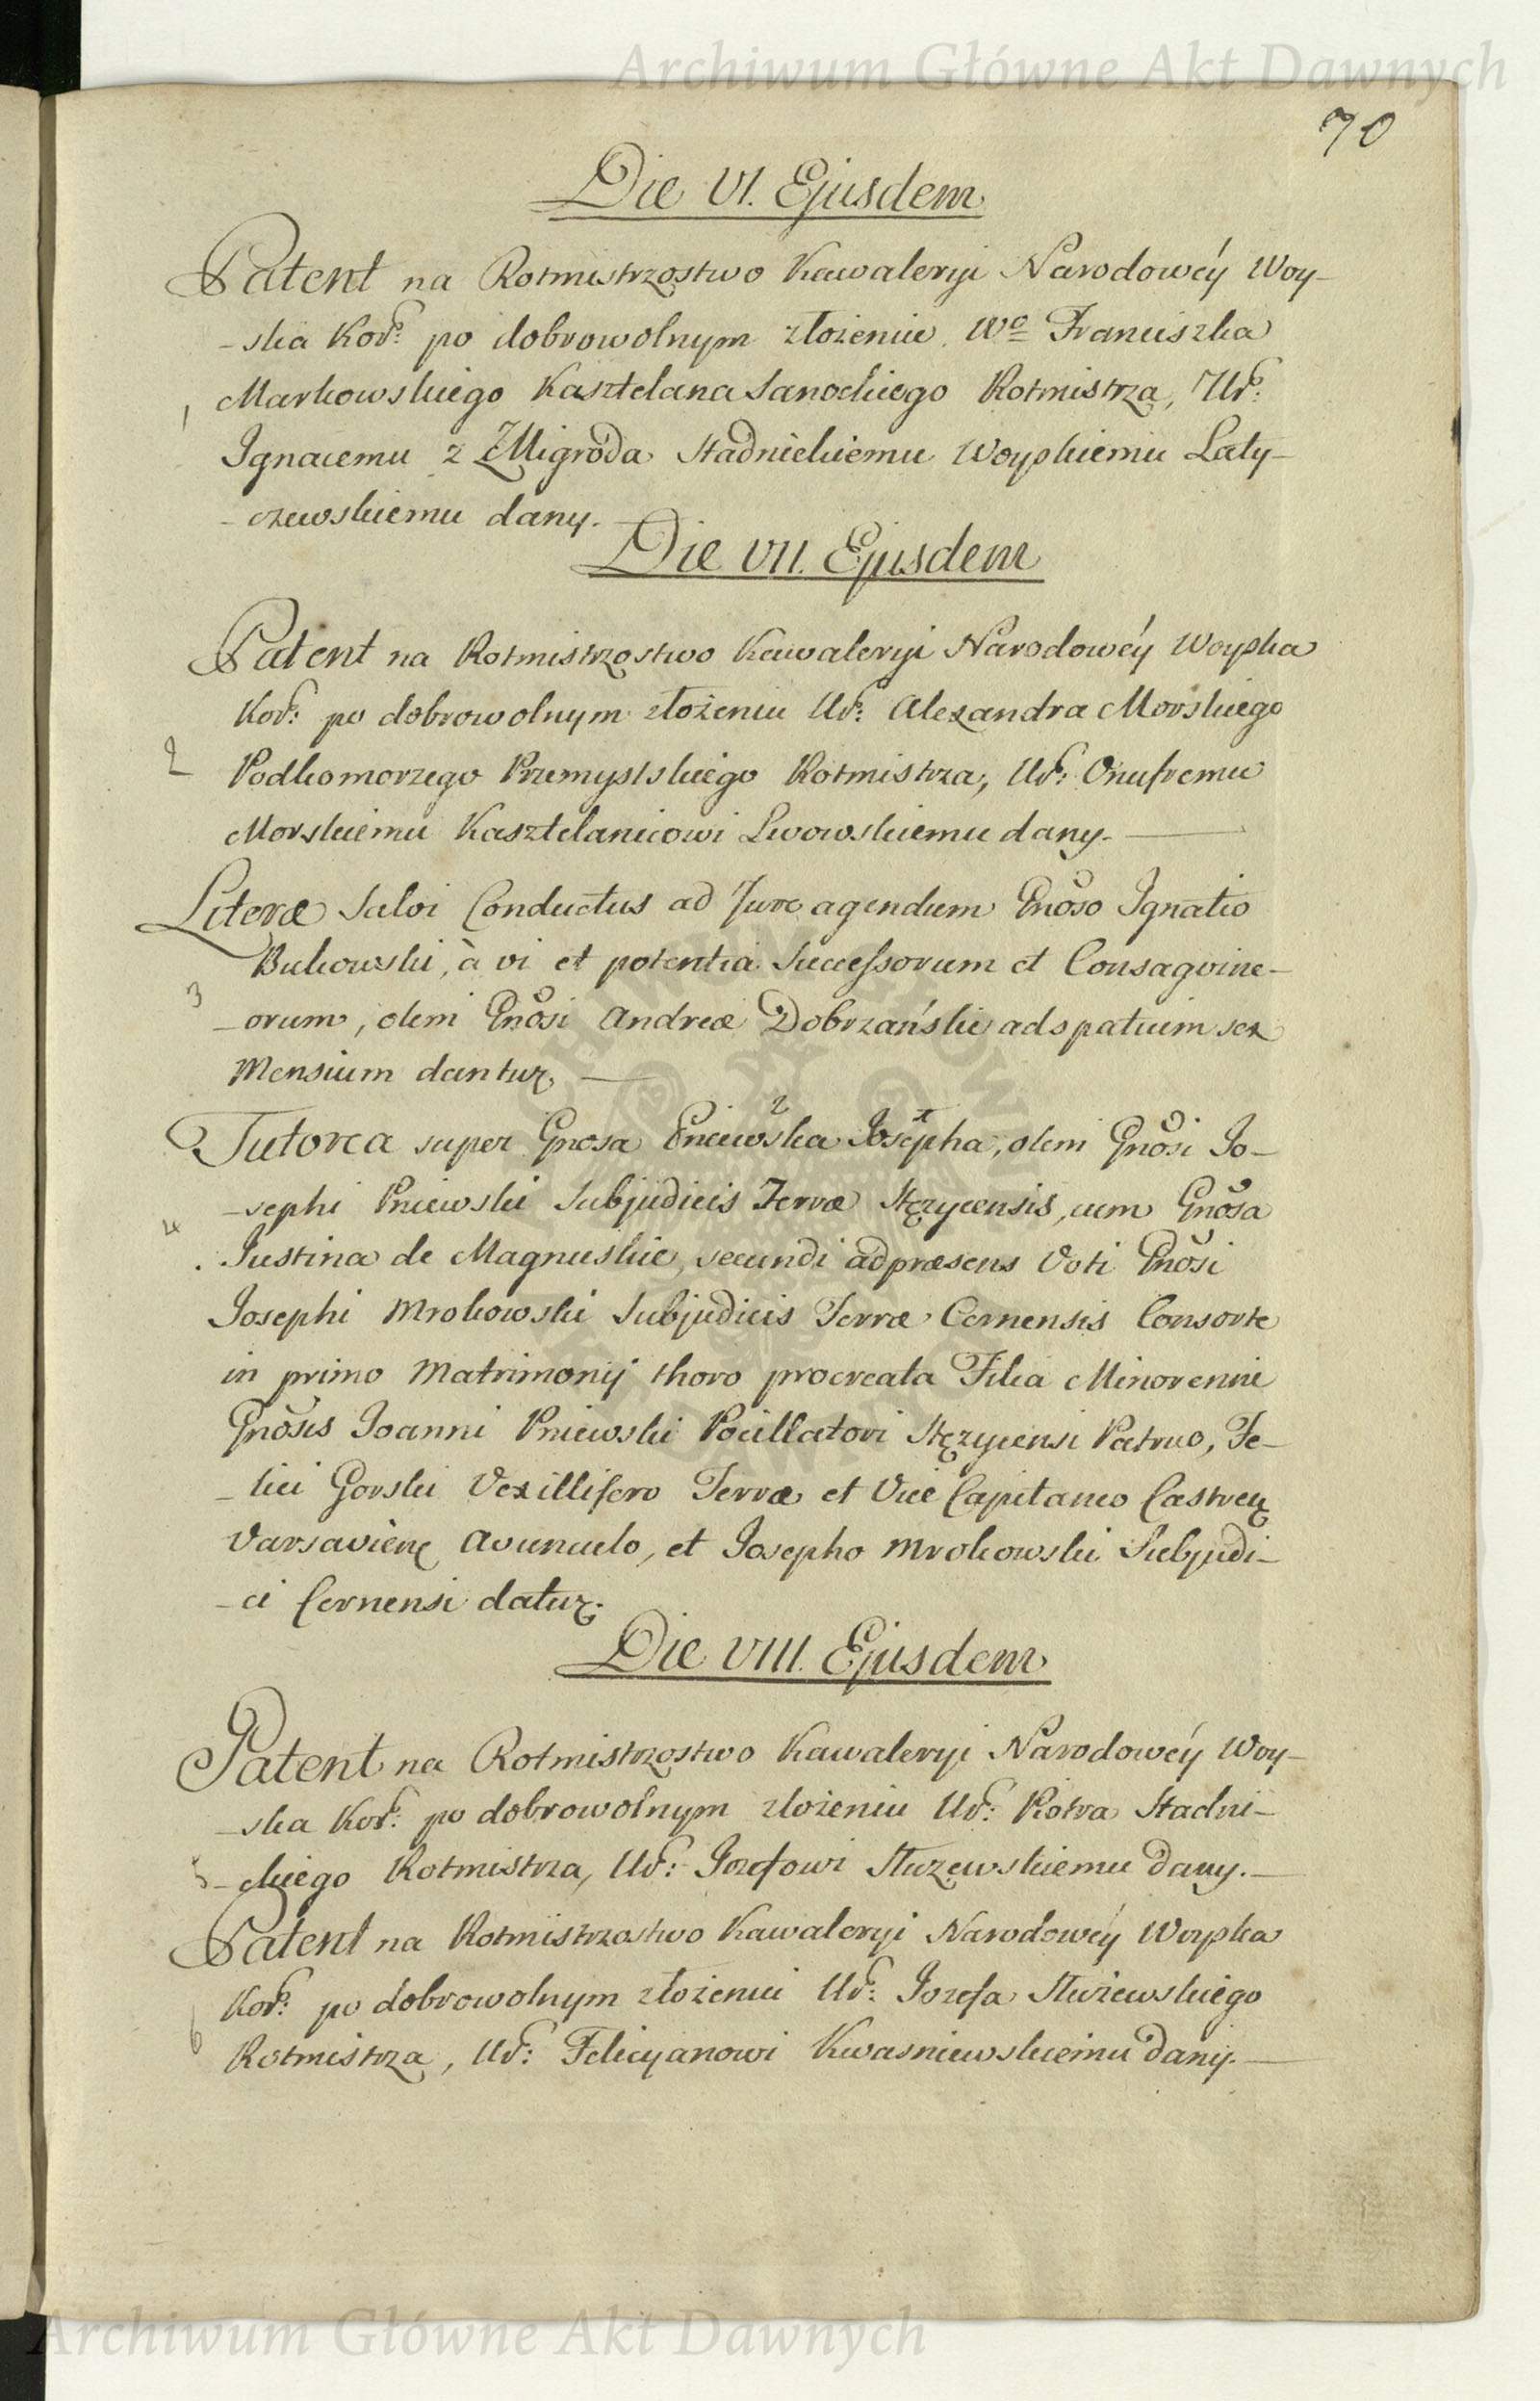 Archiwum Główne Akt Dawnych
70
Die VI. Ejusdem
Patent na Rotmistrzostwo Kawaleryi Narodowéy Woy-
-ska Kor: po dobrowolnym złożeniu Wo Franciszka
1 Markowskiego Kasztelana Sanockiego Rotmistrza, Ur:
Ignacemu z ŻMigroda Stadnickiemu Woyskiemu Laty-
-czewskiemu dany.
Die VII. Ejusdem
Patent na Rotmistrzostwo Kawaleryi Narodowéy Woyska
Kor: po dobrowolnym złożeniu Ur: Alexandra Morskiego
2 Podkomorzego Przemyslskiego Rotmistrza, Ur: Onufremu
Morskiemu Kasztelanicowi Lwowskiemu dany.
Literæ Salvi Conductus ad Jure agendum Gnoso Ignatio
Bukowski, à vi et potentia Successorum et Consagvine-
3 -orum, olim Gnosi Andreæ Dobrzański ad spatium sex
Mensium dantur.
Tutorea super Gnosa Pniewska 2 Josepha 1, olim Gnosi Jo-
-sephi Pniewski Subjudicis Terræ Stęzycensis, cum Gnosa
4 Justina de Magnuskie, secundi ad præsens Voti Gnosi
Josephi Mrokowski Subjudicis Terræ Cernensis Consorte
in primo Matrimonij thoro procreata Filia Minorenni
Gnosis Joanni Pniewski Pocillatori Stęzycensi Patruo, Fe-
-lici Gorski Vexillifero Terræ et Vice Capitaneo Castren
Varsavien Avunculo, et Josepho Mrokowski Subjudi-
-ci Cernensi datur.
Die VIII. Ejusdem
Patent na Rotmistrzostwo Kawaleryi Narodowéy Woy-
-ska Kor: po dobrowolnym złożeniu Ur: Piotra Stadni-
5 -ckiego Rotmistrza, Ur: Jozefowi Słuzewskiemu dany.
Patent na Rotmistrzostwo Kawaleryi Narodowéy Woyska
Kor: po dobrowolnym złożeniu Ur: Jozefa Służewskiego
6 Rotmistrza, Ur: Felicyanowi Kwasniewskiemu dany.
Archiwum Główne Akt Dawnych